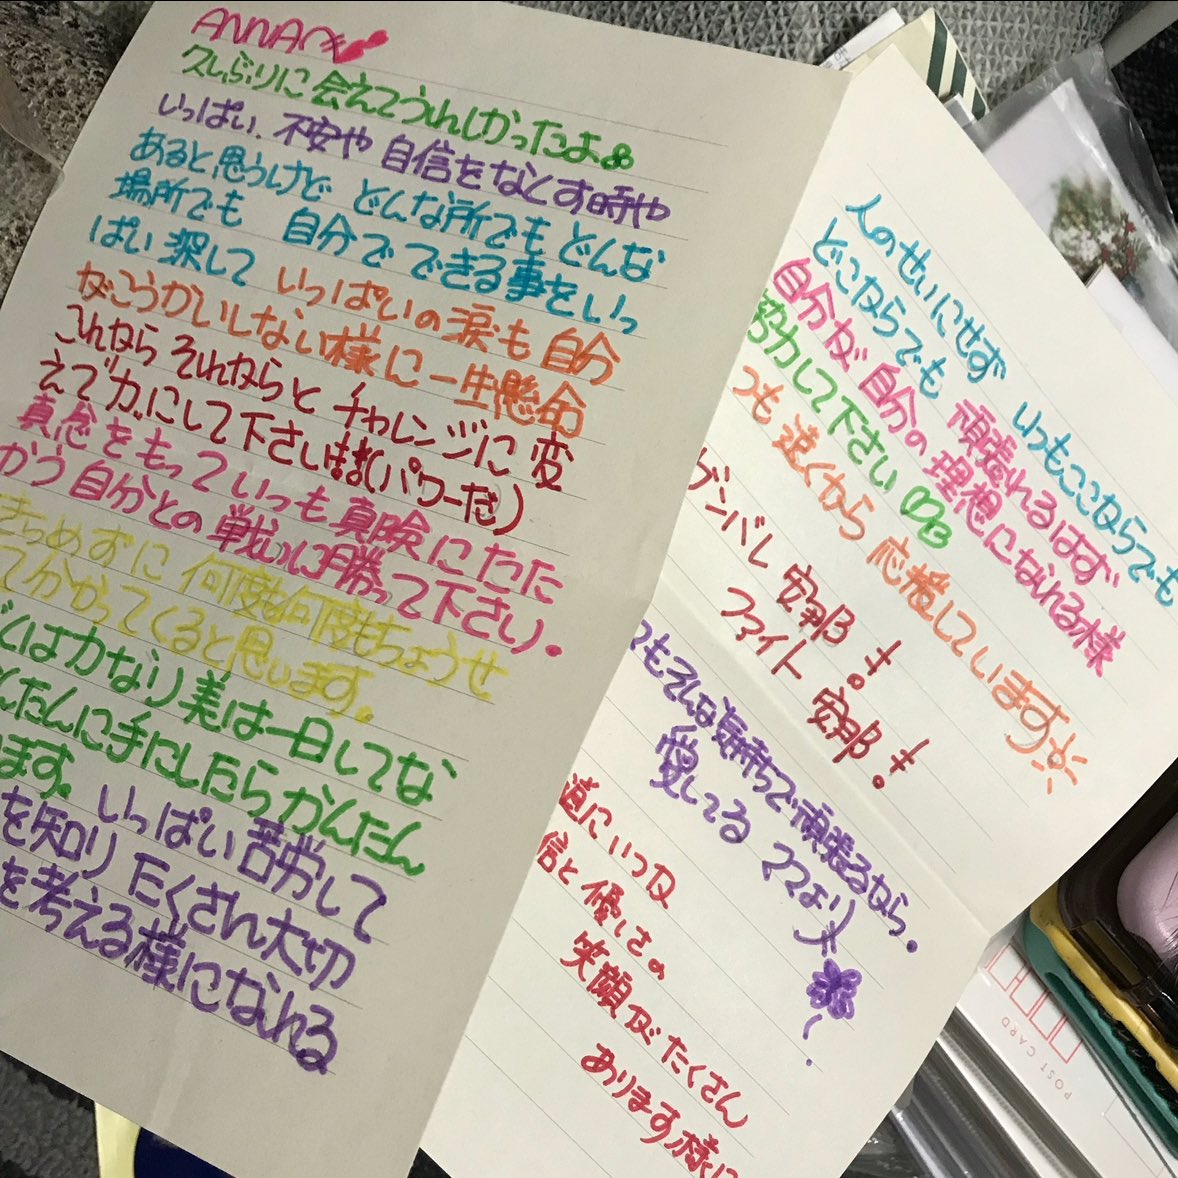 ANNAへ
久しぶりに会えてうれしかったよ
いっぱい、不安や 自信をなくす時や
あると思うけど どんな所でも どんな
場所でも 自分で できる事を いっ
ぱい 探して いっぱいの涙も 自分
がこうかいしない様に 一生懸命
これなら それならと チャレンジに 変
えて 力にして下さいね(パワーだ)
真念をもって いっも 真険に たた
かう 自分との 戦いに勝って下さい。
きらめずに 何度も何度もちょうせ
てかかってくると思います。
くはかなり 美は一日してな
んたんに手にしたら かんたん
ます。いっぱい苦労して
を知り たくさん大切
を考える様になれる
人のせいにせず いつもここならでも
どこならでも 頑張れるはず
自分が 自分の 理想になれる様
努力して下さい
つも 遠くから 応援しています
ガンバレ 安那!
ファイト 安那!
つもそんな気持ちで頑張るなら。
愛してる ママより
道に いつか
信と 優しさの
笑顔が たくさん
あります様に
POST CARD